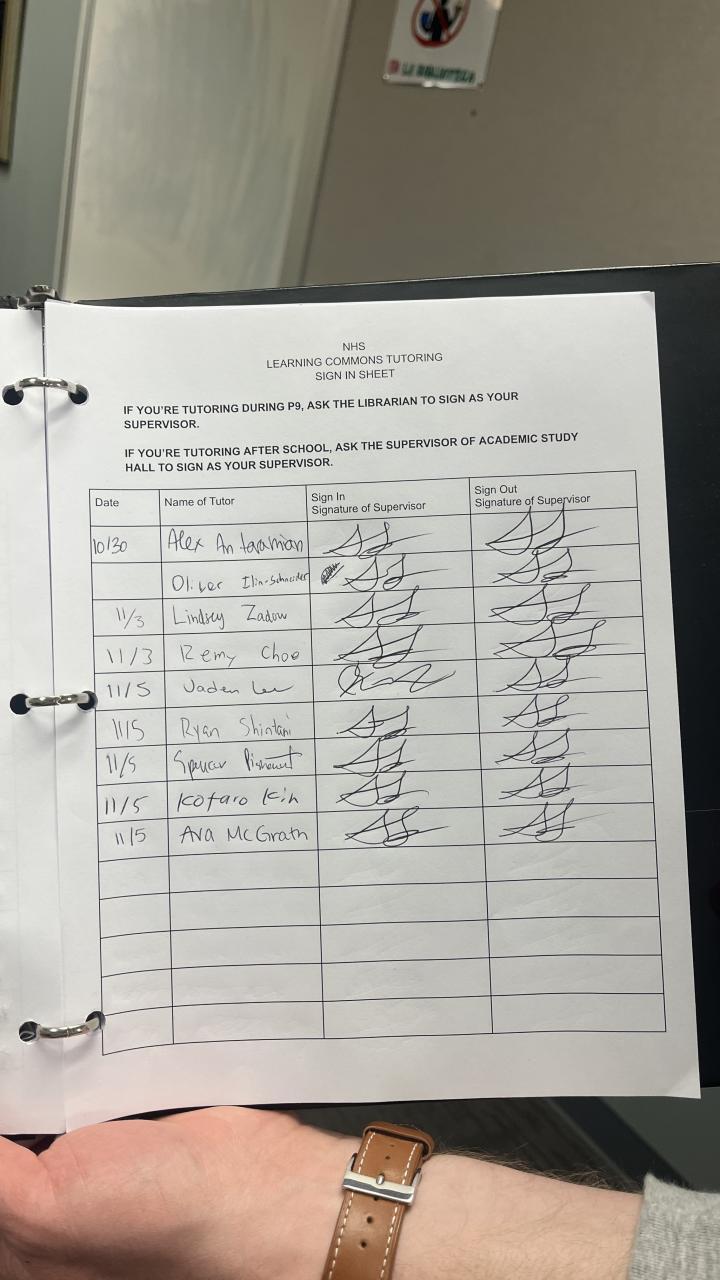 LA BIBLIOTECA
NHS
LEARNING COMMONS TUTORING
SIGN IN SHEET
IF YOU'RE TUTORING DURING P9, ASK THE LIBRARIAN TO SIGN AS YOUR
SUPERVISOR.
IF YOU'RE TUTORING AFTER SCHOOL, ASK THE SUPERVISOR OF ACADEMIC STUDY
HALL TO SIGN AS YOUR SUPERVISOR.
Date Name of Tutor Sign In Signature of Supervisor Sign Out Signature of Supervisor
10/30 Alex Antaramian
Oliver Ilin-Schneider
11/3 Lindsey Zadow
11/3 Remy Choe
11/5 Jaden Lee
11/5 Ryan Shintani
11/5 Spencer
11/5 Kotaro Kih
11/5 Ava McGrath